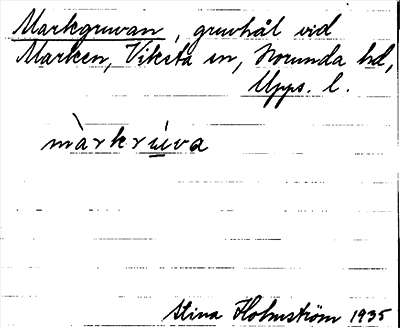 Markgruvan, gruvhål vid
Marken, Viksta sn, Norunda hd,
Upps. l.
màrkrúva
Stina Holmström 1935